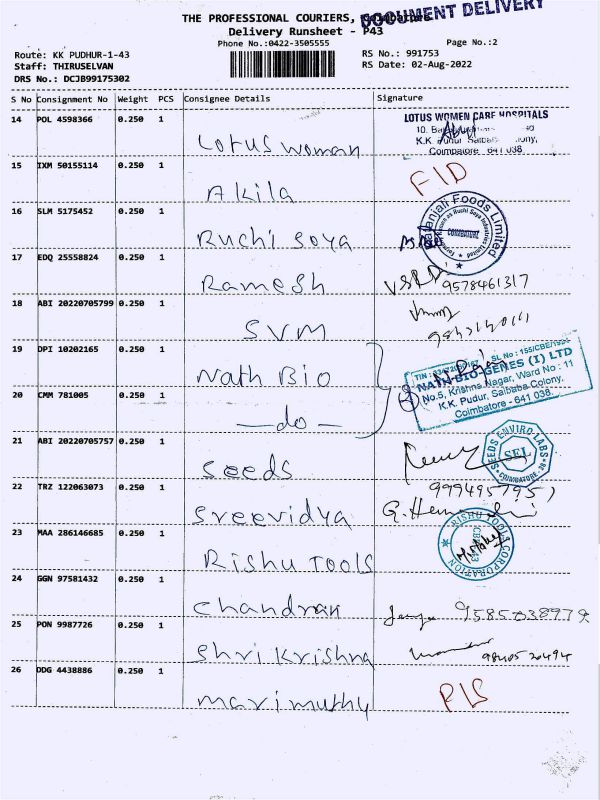 DOCUMENT DELIVERY
THE PROFESSIONAL COURIERS, Coimbatore
Delivery Runsheet - P43
Phone No.:0422-3505555
Page No.:2
Route: KK PUDHUR-1-43
RS No.: 991753
Staff: THIRUSELVAN
RS Date: 02-Aug-2022
DRS No.: DCJB99175302
S No Consignment No Weight PCS Consignee Details Signature
14 POL 4598366 0.250 1
Lotus woman
LOTUS WOMEN CARE HOSPITALS
10.
K.K. Pudur
Coimbatore 641 038.
15 IXM 50155114 0.250 1
Akila
16 SLM 5175452 0.250 1
Ruchi Soya
Patanjali Foods Limited
COIMBATORE
17 EDQ 25558824 0.250 1
Ramesh
9578461317
18 ABI 20220705799 0.250 1
SVM
19 DPI 10202165 0.250 1
Nath Bio
SL No : 155/CBE/
NATH BIO-GENES (I) LTD
No.5, Krishna Nagar, Ward No : 11
K.K. Pudur, Saibaba Colony,
Coimbatore - 641 038.
20 CMM 781005 0.250 1
—do—
21 ABI 20220705757 0.250 1
Seeds
SEEDS ENVIRO LABS
SEL
COIMBATORE
22 TRZ 122063073 0.250 1
Sreevidya
23 MAA 286146685 0.250 1
Rishu Tools
RISHU TOOLS CORPORATION
24 GGN 97581432 0.250 1
Chandran
25 PON 9987726 0.250 1
Shri Krishna
26 DDG 4438886 0.250 1
Marimuthy